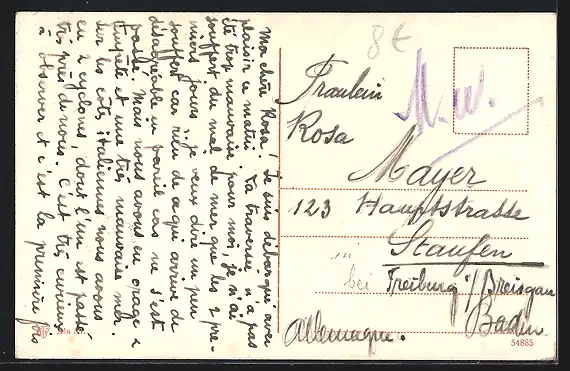 Ma chère Rosa! Je suis débarqué avec
plaisir ce matin. La traversée n'a pas
été trop mauvaise pour moi, je n'ai
souffert du mal de mer que les 2 pre-
miers jours, je veux dire un peu
souffert car rien de ce qui arrive de
désagréable en pareil cas ne s'est
passé. Mais nous avons eu orage &
tempête et une très mauvaise mer.
sur les côtes italiennes nous avons
eu 2 cyclones, dont l'un est passé
très près de nous. C'est très curieux
à observer et c'est la première fois
8 €
Fraulein
Rosa
Mayer
123 Hauptstrasse
Staufen
bei Freiburg i/Breisgau
Baden.
Allemagne.
54885